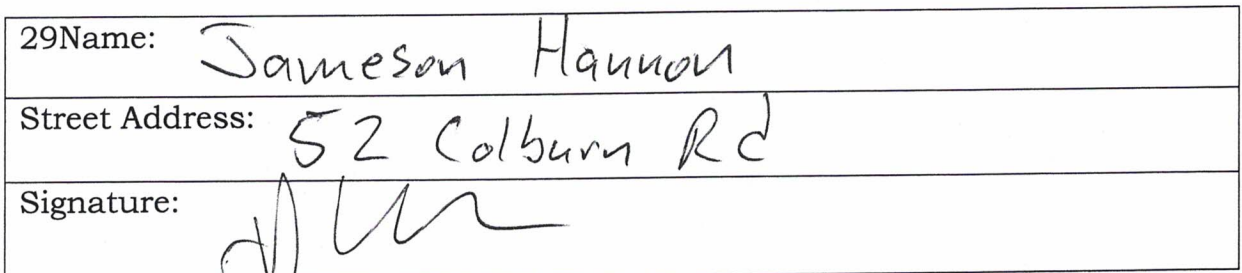 29Name: Jameson Hannon
Street Address: 52 Colburn Rd
Signature: